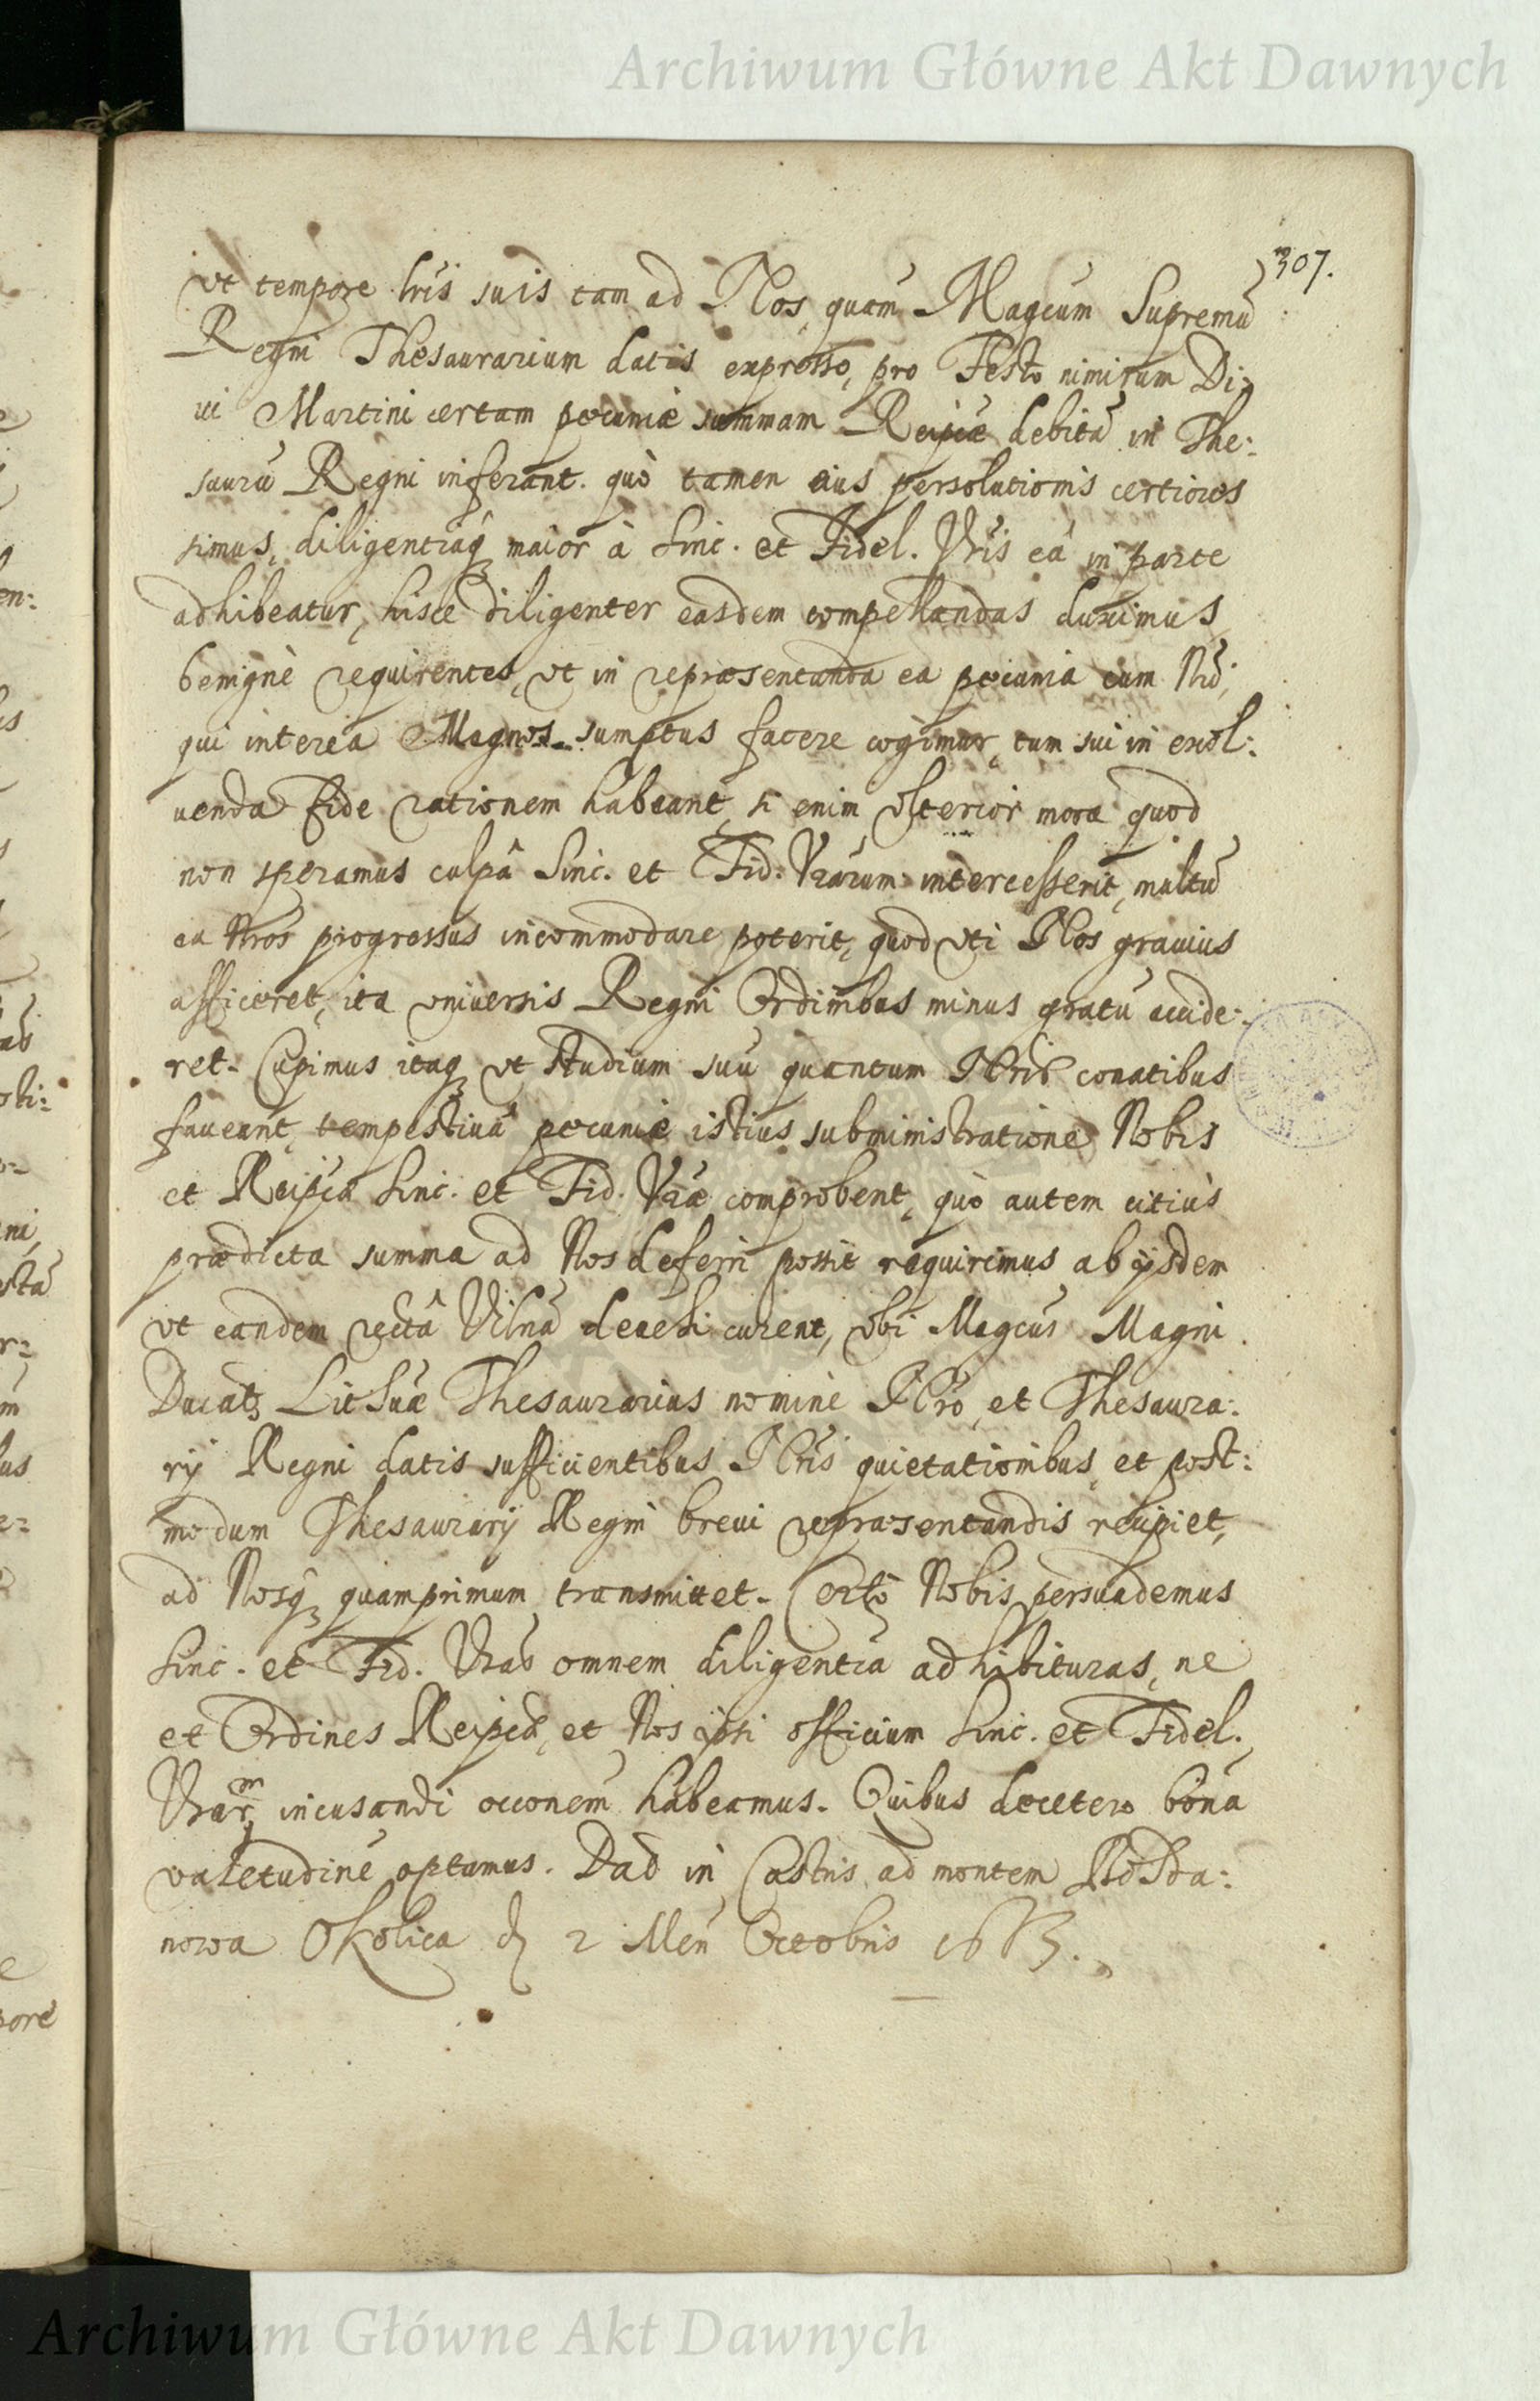 Archiwum Główne Akt Dawnych
307.
vt tempore lris suis tam ad Nos, quam Magcum Supremũ
Regni Thesaurarium datis expresso, pro Festo nimirum Di:
ui Martini certam pecuniæ summam Reipcæ debitã in The:
saurũ Regni inferant. quò tamen eius persolutionis certiores
simus, diligentiaq maior à Sinc. et Fidel. Vris eâ in parte
adhibeatur, hisce diligenter easdem compellandas duximus
benignè requirentes, vt in repræsentanda ea pecunia cum Nrĩ,
qui interea Magnos sumptus facere cogimur, tum sui in exol:
uenda fide rationem habeant, si enim vlterior mora quod
non speramus culpâ Sinc. et Fid. Vrarum intercesserit, multũ
ea Nros progressus incommodare poterit, quod vti Nos grauius
afficeret, ita vniuersis Regni Ordinibus minus gratũ accide:
ret. Cupimus itaq vt studium suũ quantum Nris conatibus
faueant, tempestiuâ pecuniæ istius subministratione Nobis
et Reipcæ Sinc. et Fid. Vræ comprobent, quò autem citius
prædicta summa ad Nos deferri possit requirimus ab ijsdem
vt eandem rectâ Vilnã deuehi curent, vbi Magcus Magni
Ducatq Lithuæ Thesaurarius nomine Nro, et Thesaura:
rij Regni datis sufficientibus Nris quietationibus, et post:
modum Thesaurarij Regni breui repræsentandis recipiet,
ad Nosq quamprimum transmittet. Certò Nobis persuademus
Sinc. et Fid. Vras omnem diligentiã adhibituras, ne
et Ordines Reipcæ, et Nos ipsi officium Sinc. et Fidel.
Vrarm incusandi occonem habeamus. Quibus decetero bonã
valetudinẽ optamus. Dad in Castris ad montem
nowa Okolica d 2 Men Octobris
Archiwum Główne Akt Dawnych